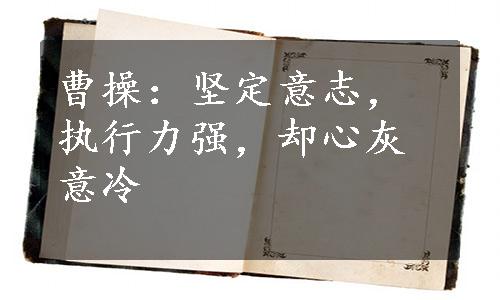 曹操：坚定意志，
执行力强，却心灰
意冷